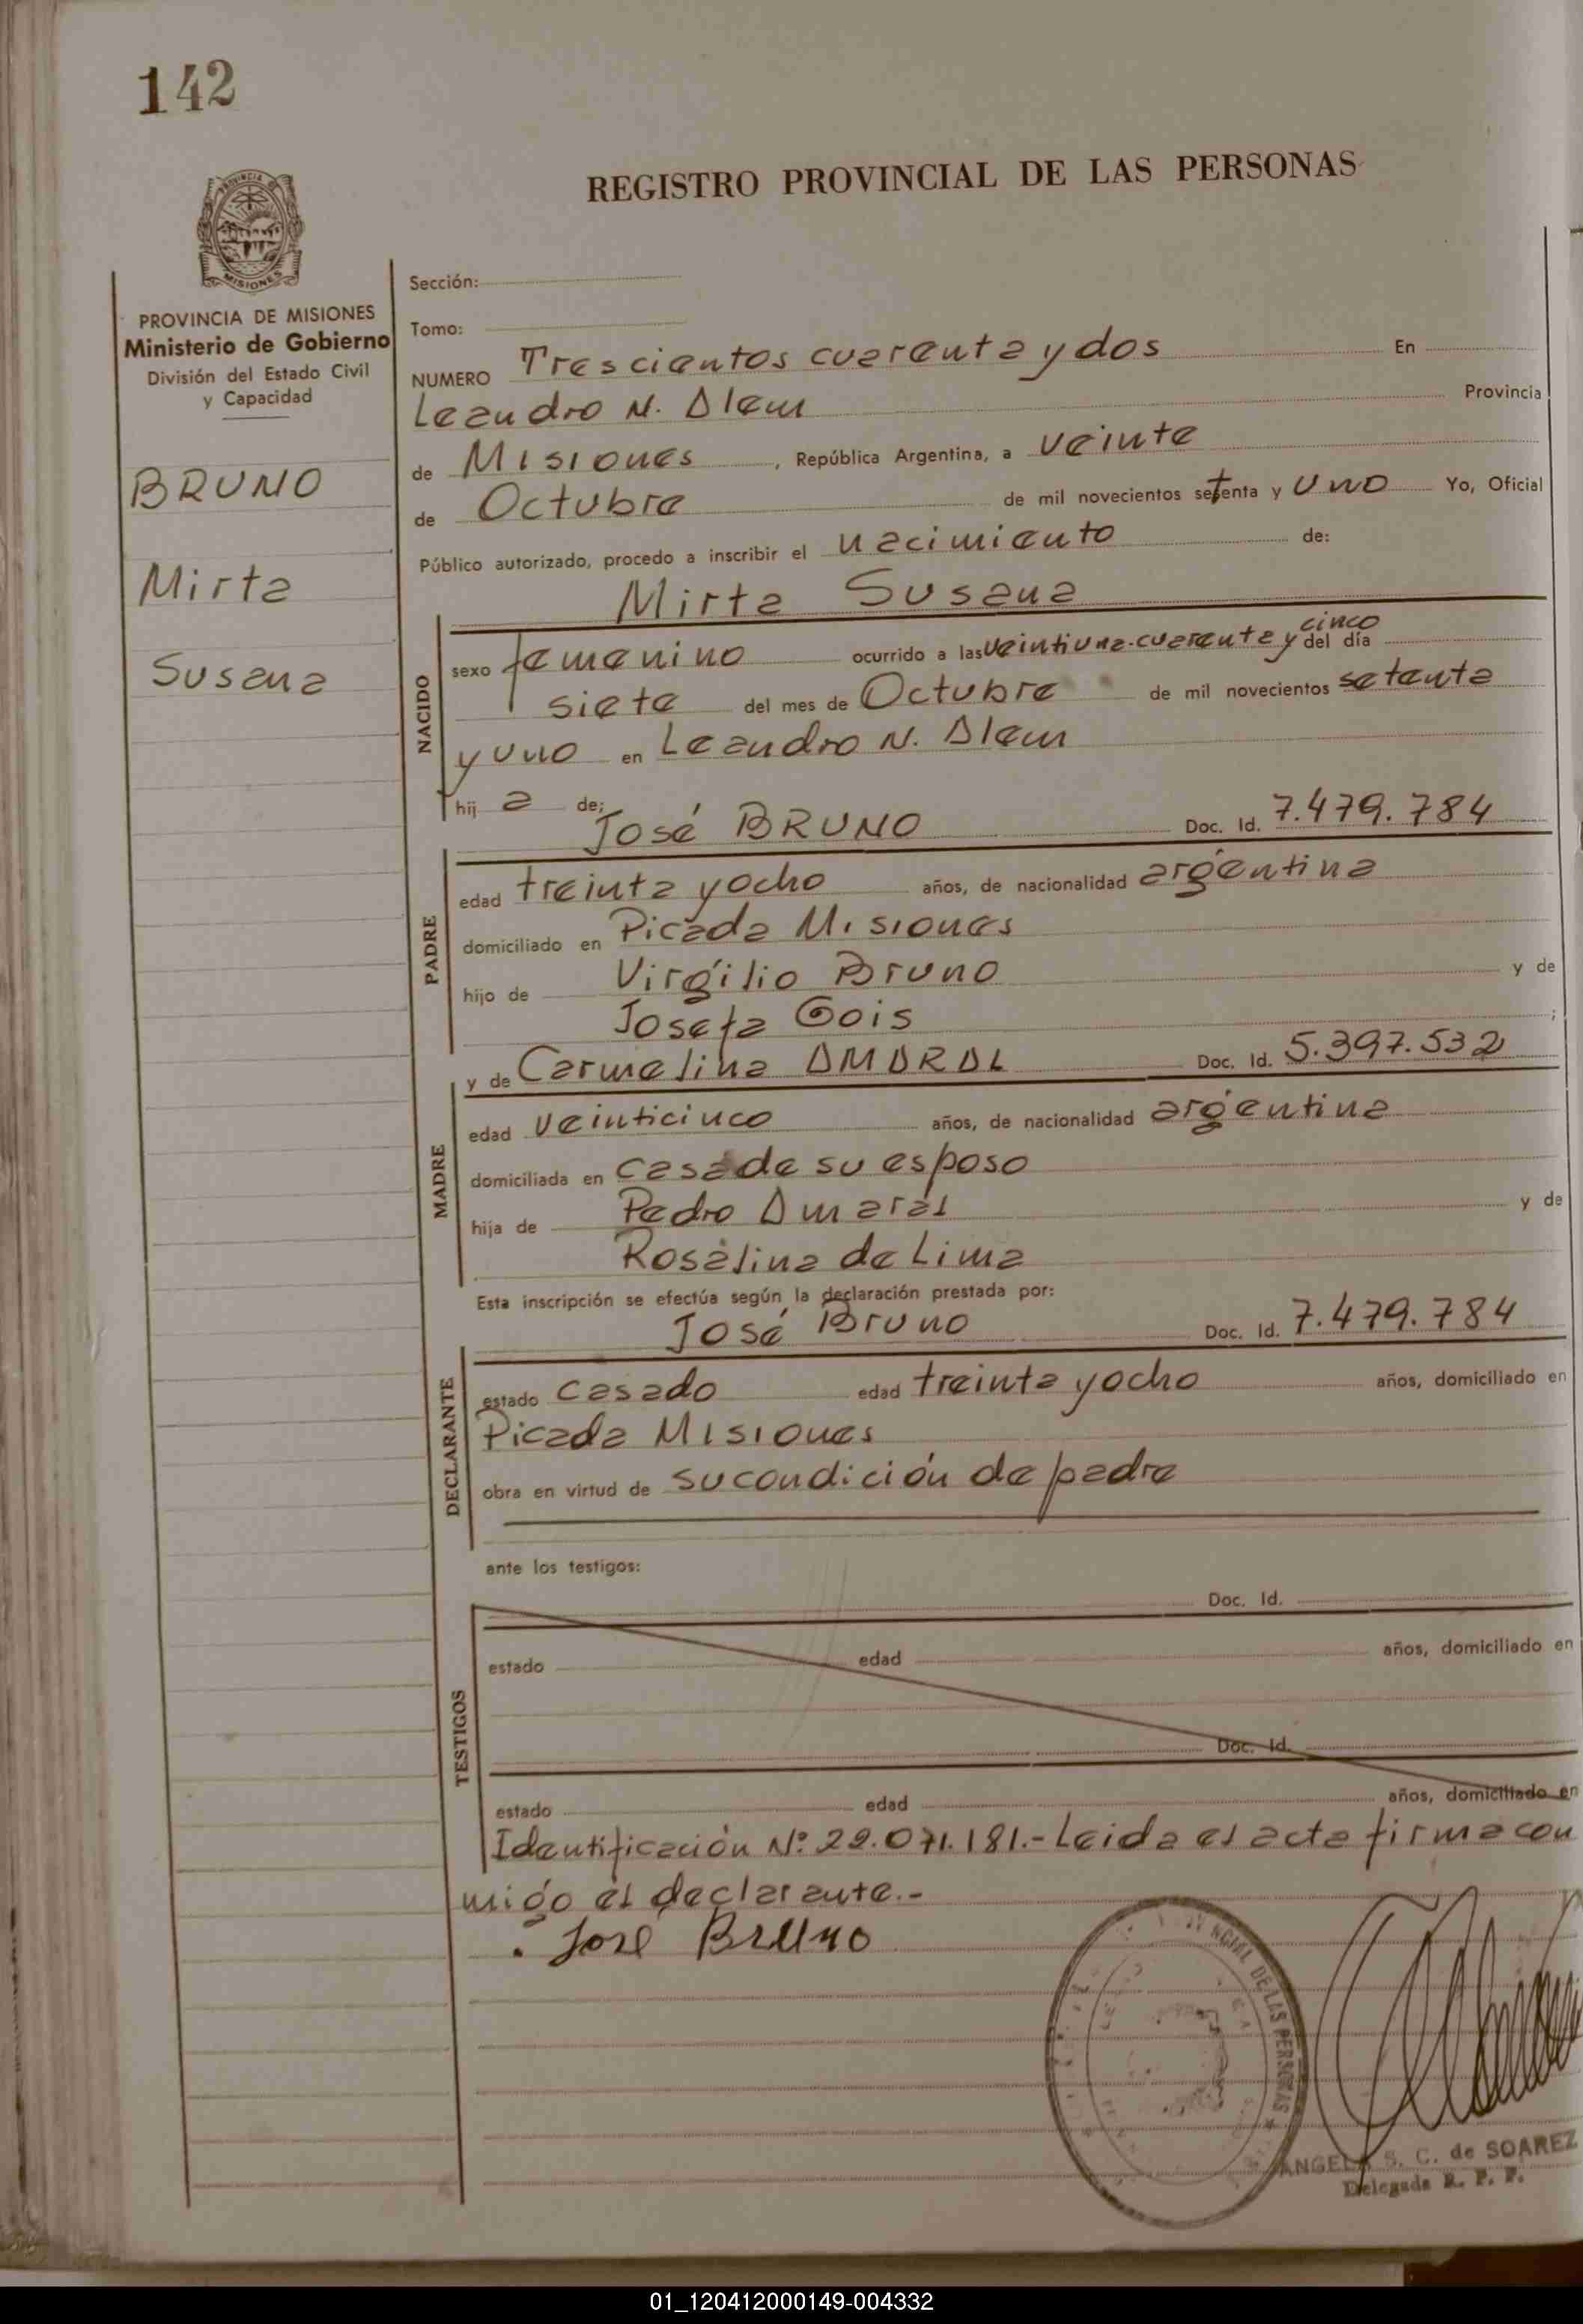 142
REGISTRO PROVINCIAL DE LAS PERSONAS
MISIONES
PROVINCIA DE MISIONES
Ministerio de Gobierno
División del Estado Civil
y Capacidad
BRUNO
Mirta
Susana
Sección:
Tomo:
NUMERO Trescientos cuarenta y dos En
Leandro N. Alem Provincia
de Misiones, República Argentina, a veinte
de Octubre de mil novecientos setenta y uno Yo, Oficial
Público autorizado, procedo a inscribir el nacimiento de:
Mirta Susana
NACIDO
cinco
sexo femenino ocurrido a las veintiuna-cuarenta y del día
siete del mes de Octubre de mil novecientos setenta
y uno en Leandro N. Alem
hij a de:
José BRUNO Doc. Id. 7.479.784
PADRE
edad treinta y ocho años, de nacionalidad argentina
domiciliado en Picada Misiones
hijo de Virgilio Bruno y de
Josefa Gois ;
y de Carmelina AMARAL Doc. Id. 5.397.532
MADRE
edad veinticinco años, de nacionalidad argentina
domiciliada en casa de su esposo
hija de Pedro Amaral y de
Rosalina de Lima
Esta inscripción se efectúa según la declaración prestada por:
José Bruno Doc. Id. 7.479.784
DECLARANTE
estado casado edad treinta y ocho años, domiciliado en
Picada Misiones
obra en virtud de su condición de padre
ante los testigos:
Doc. Id.
TESTIGOS
estado edad años, domiciliado en
Doc. Id.
estado edad años, domiciliado en
Identificación Nº 22.071.181.- Leida el acta firma con
migo el declarante.-
José Bruno
NCIAL DE LAS PERSONAS
ANGELA S. C. de SOAREZ
Delegada R. P. P.
01_120412000149-004332